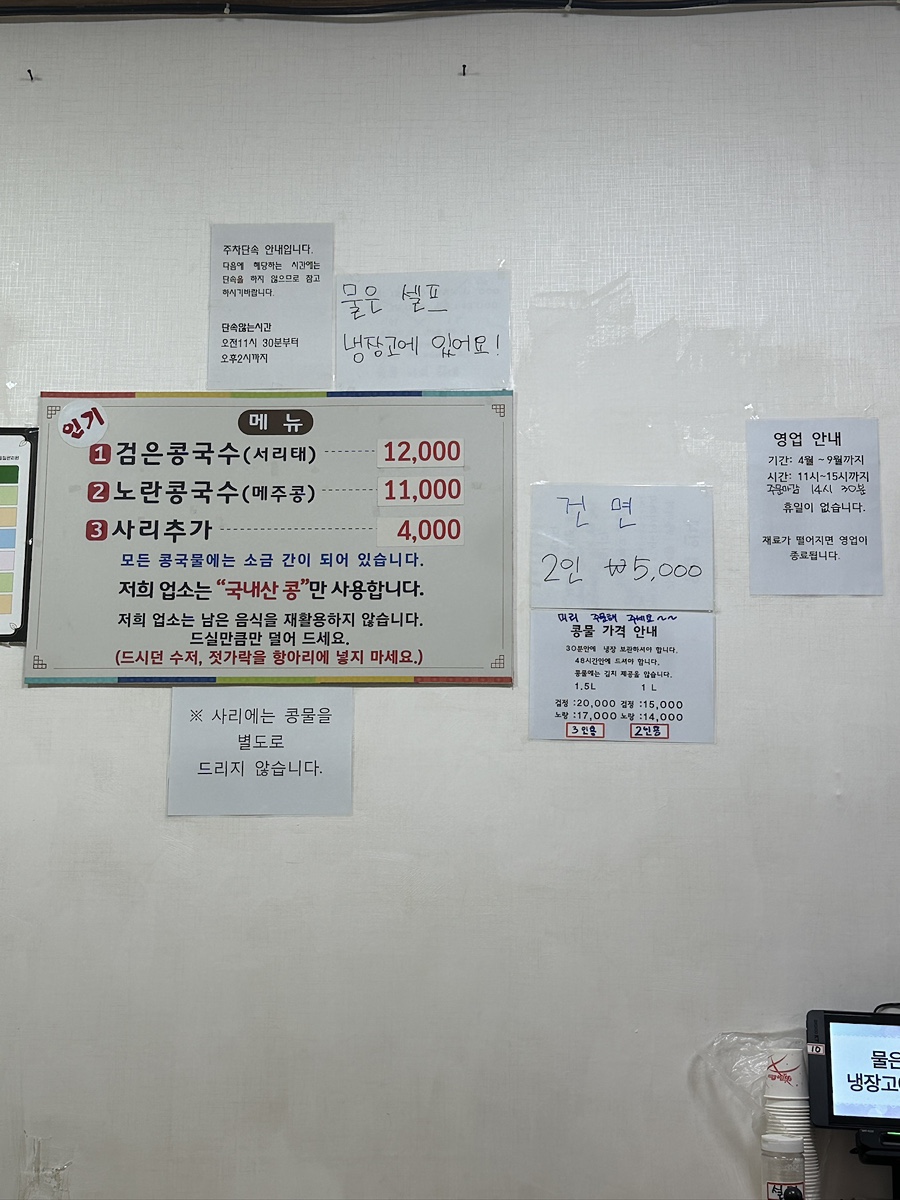 주차단속 안내입니다.
다음에 해당하는 시간에는
단속을 하지 않으므로 참고
하시기바랍니다.
단속않는시간
오전11시 30분부터
오후2시까지
물은 셀프
냉장고에 있어요!
인기
메 뉴
1 검은콩국수(서리태) 12,000
2 노란콩국수(메주콩) 11,000
3 사리추가 4,000
모든 콩국물에는 소금 간이 되어 있습니다.
저희 업소는 “국내산 콩”만 사용합니다.
저희 업소는 남은 음식을 재활용하지 않습니다.
드실만큼만 덜어 드세요.
(드시던 수저, 젓가락을 항아리에 넣지 마세요.)
※ 사리에는 콩물을
별도로
드리지 않습니다.
건 면
2인 ₩5,000
미리 주문해 주세요~~
콩물 가격 안내
30분안에 냉장 보관하셔야 합니다.
48시간안에 드셔야 합니다.
콩물에는 김치 제공을 않습니다.
1.5L 1 L
검정 :20,000 검정 :15,000
노랑 :17,000 노랑 :14,000
3인용 2인용
영업 안내
기간: 4월 ~ 9월까지
시간: 11시~15시까지
주문마감 14시 30분
휴일이 없습니다.
재료가 떨어지면 영업이
종료됩니다.
10
물은
냉장고에